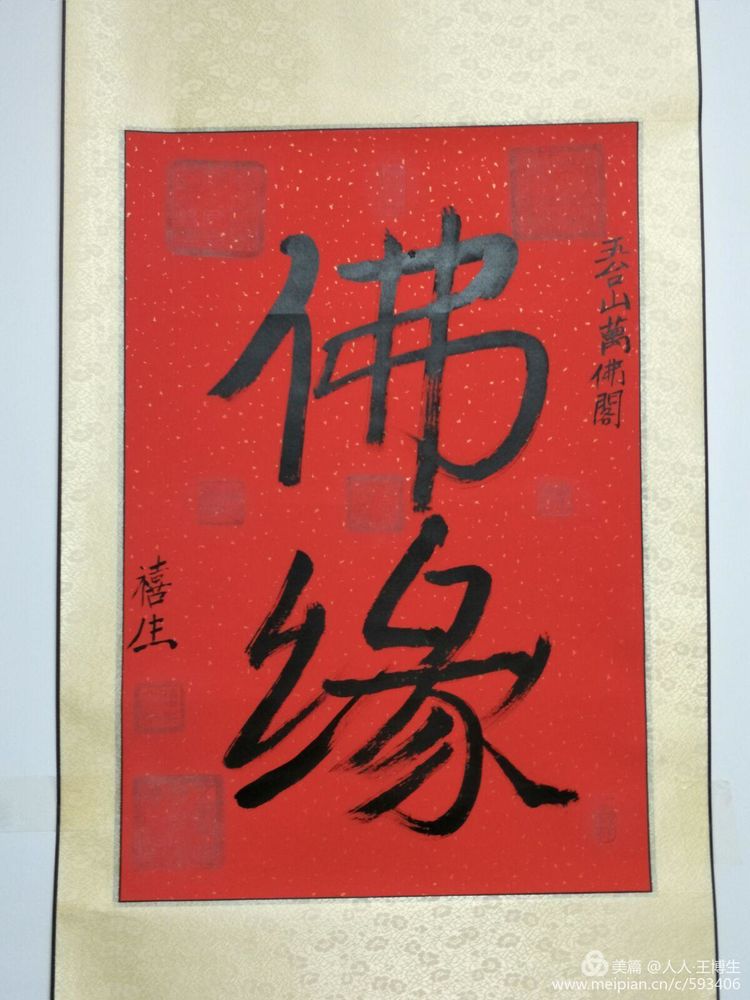 五台山萬佛閣
佛缘
禧生
美篇 @人人·王博生
www.meipian.cn/c/593406